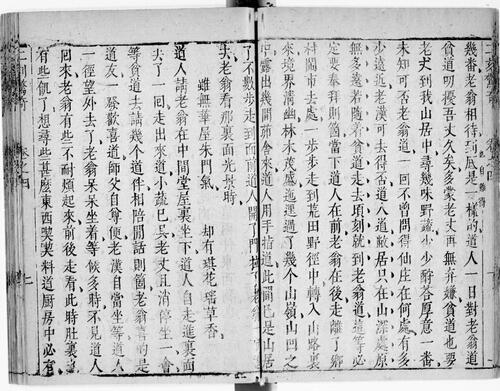 二刻驚奇
幾番老翁相待到底是一般道人一日對老翁道
也自難得
貧道叨擾吾丈久矣多蒙老丈再無弃嫌貧道也要
老丈到我山居中尋幾味野蔬少少酧荅厚意一番
未知可否老翁道一向不曾問得仙庄在何處有多
少遠近老漢可去得否道人道敝居只在山深處原
無多遠若隨着貧道走去頃刻就到老翁道這等必
定要奉拜則箇當下道人在前老翁在後走離了鄉
村閙市去處一步步走到荒田野徑中轉入山路裏
來境界清幽林木茂盛迤逦過了幾个山嶺山凹之
中露出幾間茅舍來道人用手指道此間已是山居
了不數步走到面前道人開了門拽了老翁
去老翁看那裏面光景時
雖無華屋朱門氣　却有琪花瑤草香
道人請老翁在中間堂屋裏坐下道人自走進裏面
去了一回走出來道小蔬已具老丈且消停坐一會
等貧道去請幾个道伴相陪閒話則箇老翁喜的是
道友一發歡喜道師父自尊便老漢自當坐等道人
一徑望外去了老翁呆呆坐着等候多時不見道人
回來老翁有些不耐煩起來前後走看此時肚裏裏
有些飢了想尋些甚麼東西契契料道厨房中必有
二刻驚奇